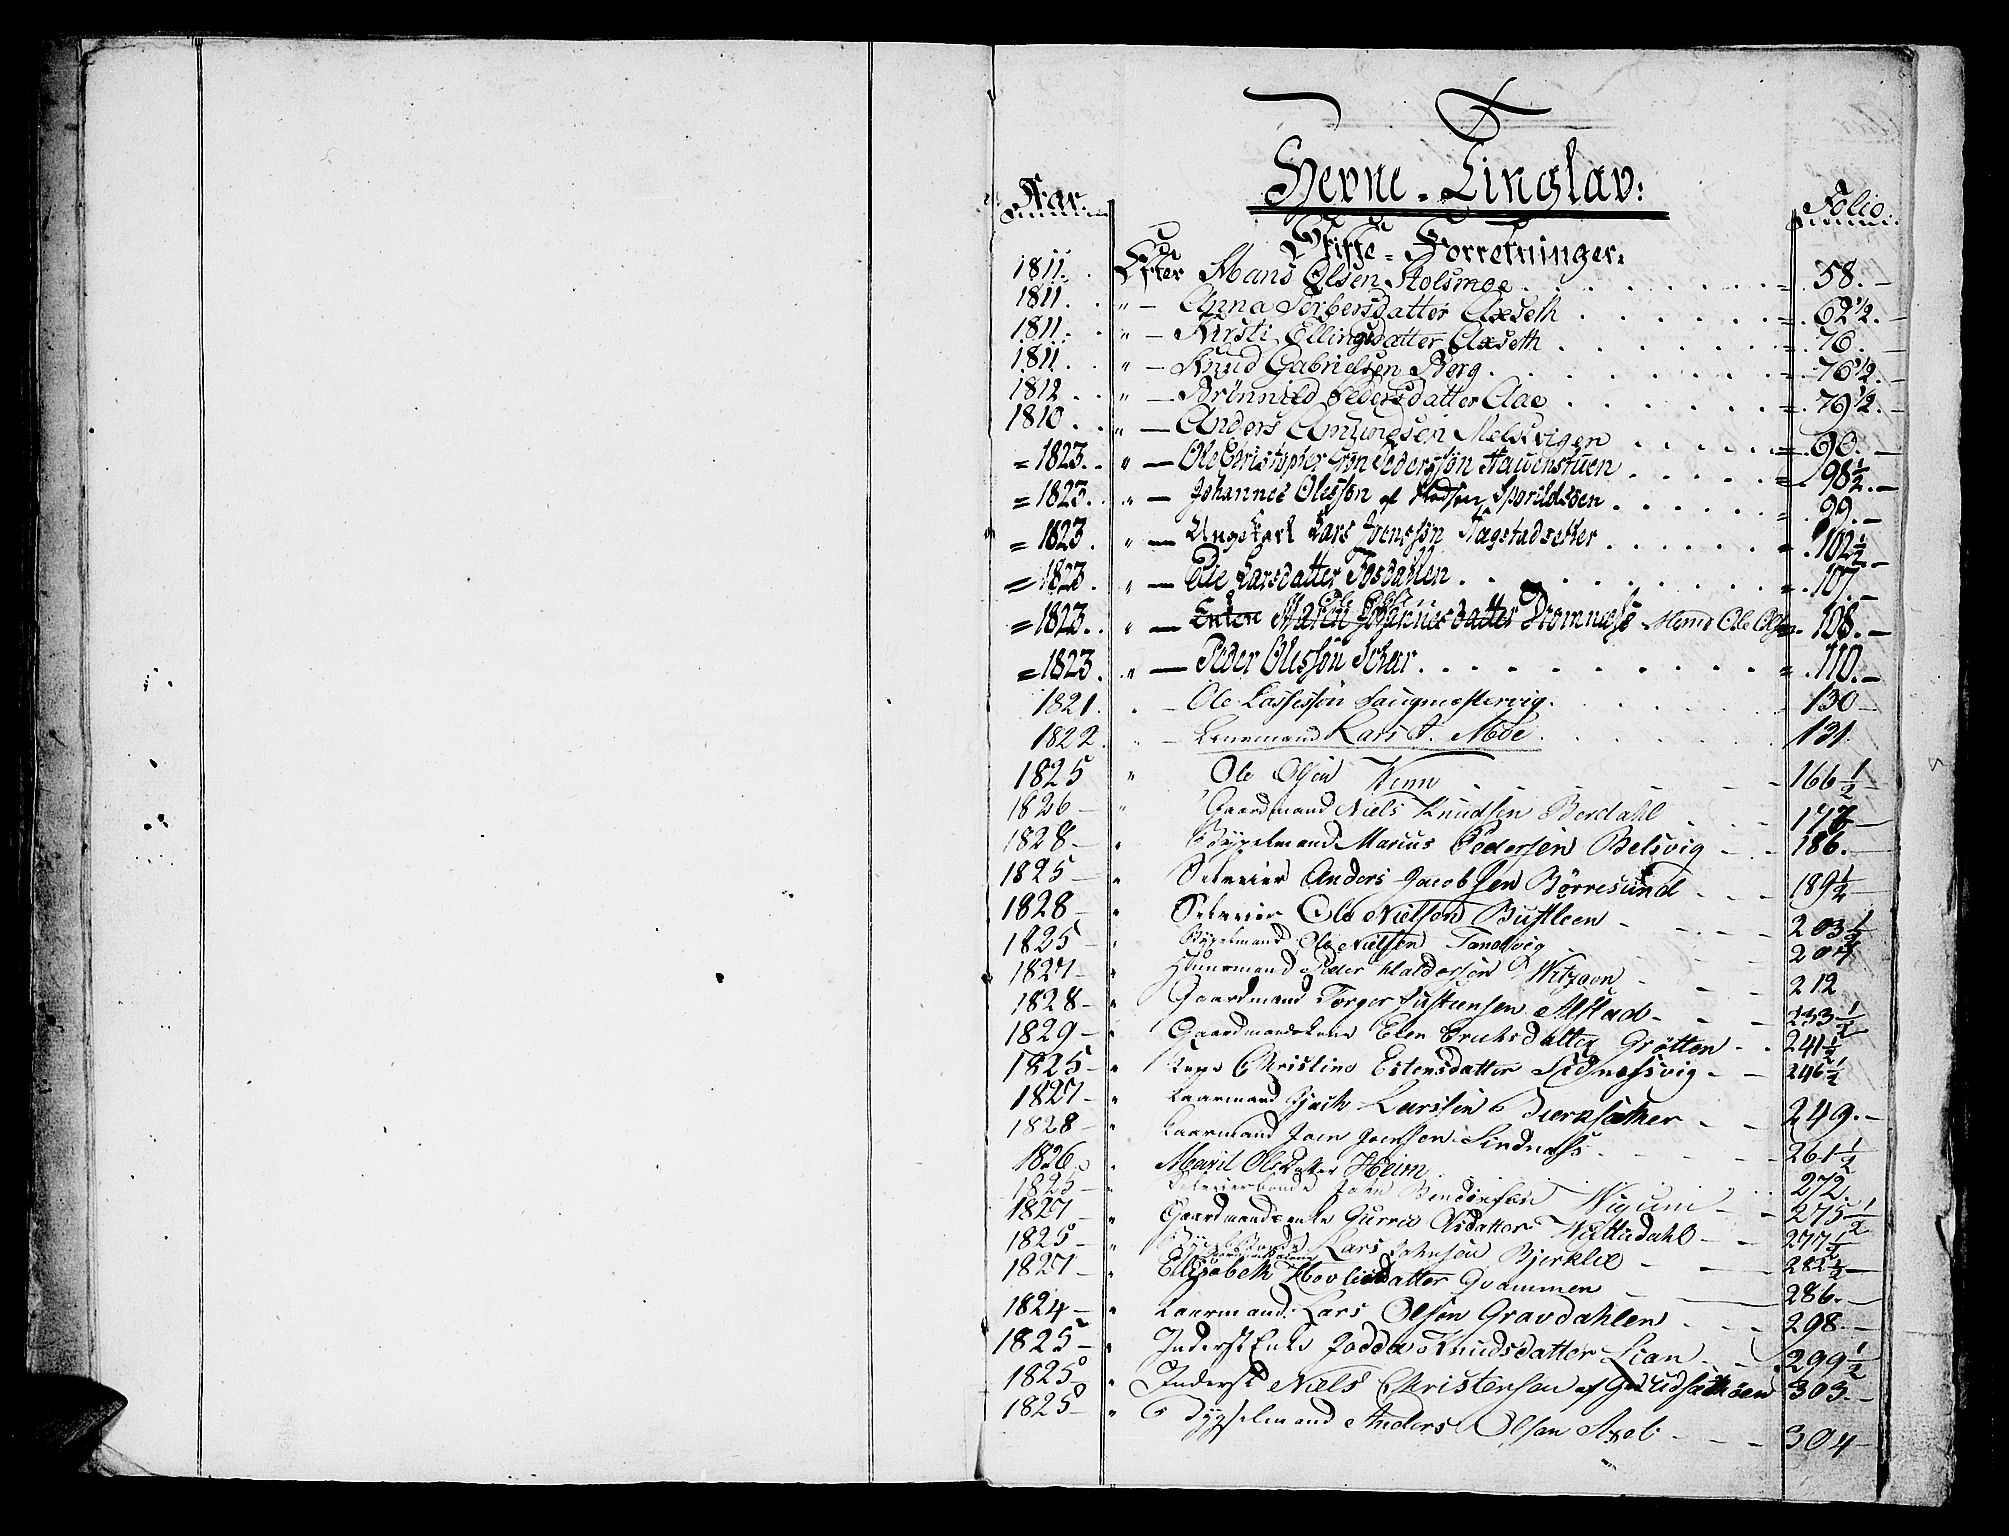 Hevne-Tinglav:
Aar Folio
Skifte-Forretninger.
1811. Efter Mans Olsen Stolsmoe 58.
1811. " — Anna Torbersdatter Axseth 62 1/2.
1811. " — Kirsti Ellingsdatter Axseth 76.
1811. " — Knud Gabrielsen Berg 76 1/2.
1812. " — Brönnild Pedersdatter Aae 79 1/2.
1810. " — Anders Amundsen Melsvigen 90.
1823. " — Ole Christopher Grøn Pedersøn Hauvenstuen 98 1/2.
1823. " — Johannes Olessøn af Spørildsöen 99.
1823. " — Ungekarl Lars Joenssøn Hagstadsetter 102 1/2.
1823. " — Ele Larsdatter Fosdahlen 107.
Ole Olsen
1823. " — Enken Maren Johannesdatter Dromnæss Mand Ole Olsen 108.
1823. " — Peder Olessøn Schar 110.
1821. " — Ole Lassessøn Laugmestervig. 130
1822. " — Lensmand Lars A. Moe 131
1825 " Ole Olsen Venn 166 1/2
1826 " Gaardmand Niels Knudsen Berdahl 177
1828 " Bygselmand Marius Pedersen Belsvig 186.
1825 " Selveier Anders Jacobsen Børresund 189 1/2
1828 " Selveier Ole Nielsen Bustleen 203 1/2
1825 " Bygselmand Ole Nielsen Tandvig 204
1827 " Huusmand Peder Haldorsen Witzøen 212
1828 " Gaardmand Torger Justensen Alstad 233 1/2
1829 " Gaardmandskone Elen Erichsdatter Grøtten 241 1/2
1825 " Christine Estensdatter Sidnessvig 246 1/2
1827 " Kaarmand Larssen Biørnsæther 249.
1828 " Kaarmand Joen Joenssen Sindnæss 261 1/2
1826 " Marit Olsdatter Heim 272.
1825 " Selveierbonde John Wigum 275 1/2
1827 " Gaardmandsenke Gurroe Olsdatter Wættudahl 277 1/2
1825 " Lars Johnsen Bjerklie 282 1/2
1827 " Elisabeth Hovlisdatter Qvammen 286.
1824 " Kaarmand Lars Olsen Gravdahlen 298.
1825 " Inderst Enke Jodda Knudsdatter Lian 299 1/2
1825 " Inderst Niels Christensen af 303.
1825 " Bygselmand Anders Olsen Axel 304